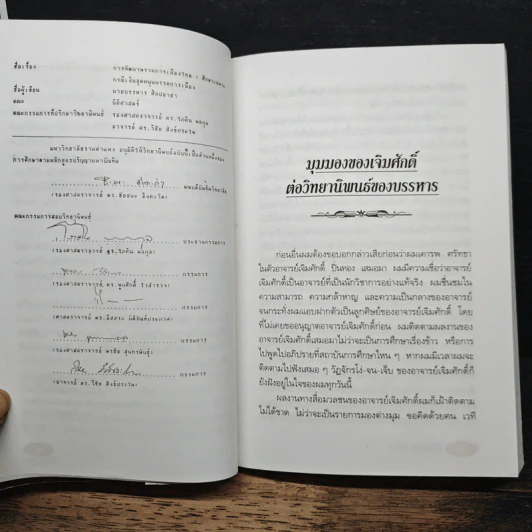 ชื่อเรื่อง การพัฒนาพรรคการเมืองไทย : ศึกษาเฉพาะ
กรณีเงินอุดหนุนพรรคการเมือง
ชื่อผู้เขียน นายบรรหาร ศิลปอาชา
คณะ นิติศาสตร์
คณะกรรมการที่ปรึกษาวิทยานิพนธ์ รองศาสตราจารย์ ดร.
อาจารย์ ดร.
มหาวิทยาลัยรามคำแหง อนุมัติให้วิทยานิพนธ์ฉบับนี้เป็นส่วนหนึ่งของ
การศึกษาตามหลักสูตรปริญญามหาบัณฑิต
คณบดีบัณฑิตวิทยาลัย
(รองศาสตราจารย์ ดร.
คณะกรรมการสอบวิทยานิพนธ์
ประธานกรรมการ
(รองศาสตราจารย์ ดร.
กรรมการ
(รองศาสตราจารย์ ดร.
กรรมการ
(ศาสตราจารย์ ดร.
กรรมการ
(รองศาสตราจารย์
กรรมการ
(อาจารย์ ดร.
มุมมองของเจิมศักดิ์
ต่อวิทยานิพนธ์ของบรรหาร
ก่อนอื่นผมต้องขอบอกกล่าวเสียก่อนว่าผมเคารพ ศรัทธา
ในตัวอาจารย์เจิมศักดิ์ ปิ่นทอง เสมอมา ผมมีความเชื่อว่าอาจารย์
เจิมศักดิ์เป็นอาจารย์ที่เป็นนักวิชาการอย่างแท้จริง ผมชื่นชมใน
ความสามารถ ความกล้าหาญ และความเป็นกลางของอาจารย์
จนกระทั่งผมแอบฝากตัวเป็นลูกศิษย์ของอาจารย์เจิมศักดิ์ โดย
ที่ไม่เคยขออนุญาตอาจารย์เจิมศักดิ์ก่อน ผมติดตามผลงานของ
อาจารย์เจิมศักดิ์เสมอมาไม่ว่าจะเป็นการศึกษาเรื่องข้าว หรือการ
ไปพูดไปอภิปรายที่สถาบันการศึกษาไหน ๆ หากผมมีเวลาผมจะ
ติดตามไปฟังเสมอ ๆ วัฏจักรโง่-จน-เจ็บ ของอาจารย์เจิมศักดิ์ก็
ยังฝังอยู่ในใจของผมทุกวันนี้
ผลงานทางสื่อมวลชนของอาจารย์เจิมศักดิ์ผมก็เฝ้าติดตาม
ไม่ได้ขาด ไม่ว่าจะเป็นรายการมองต่างมุม ขอคิดด้วยคน เวที